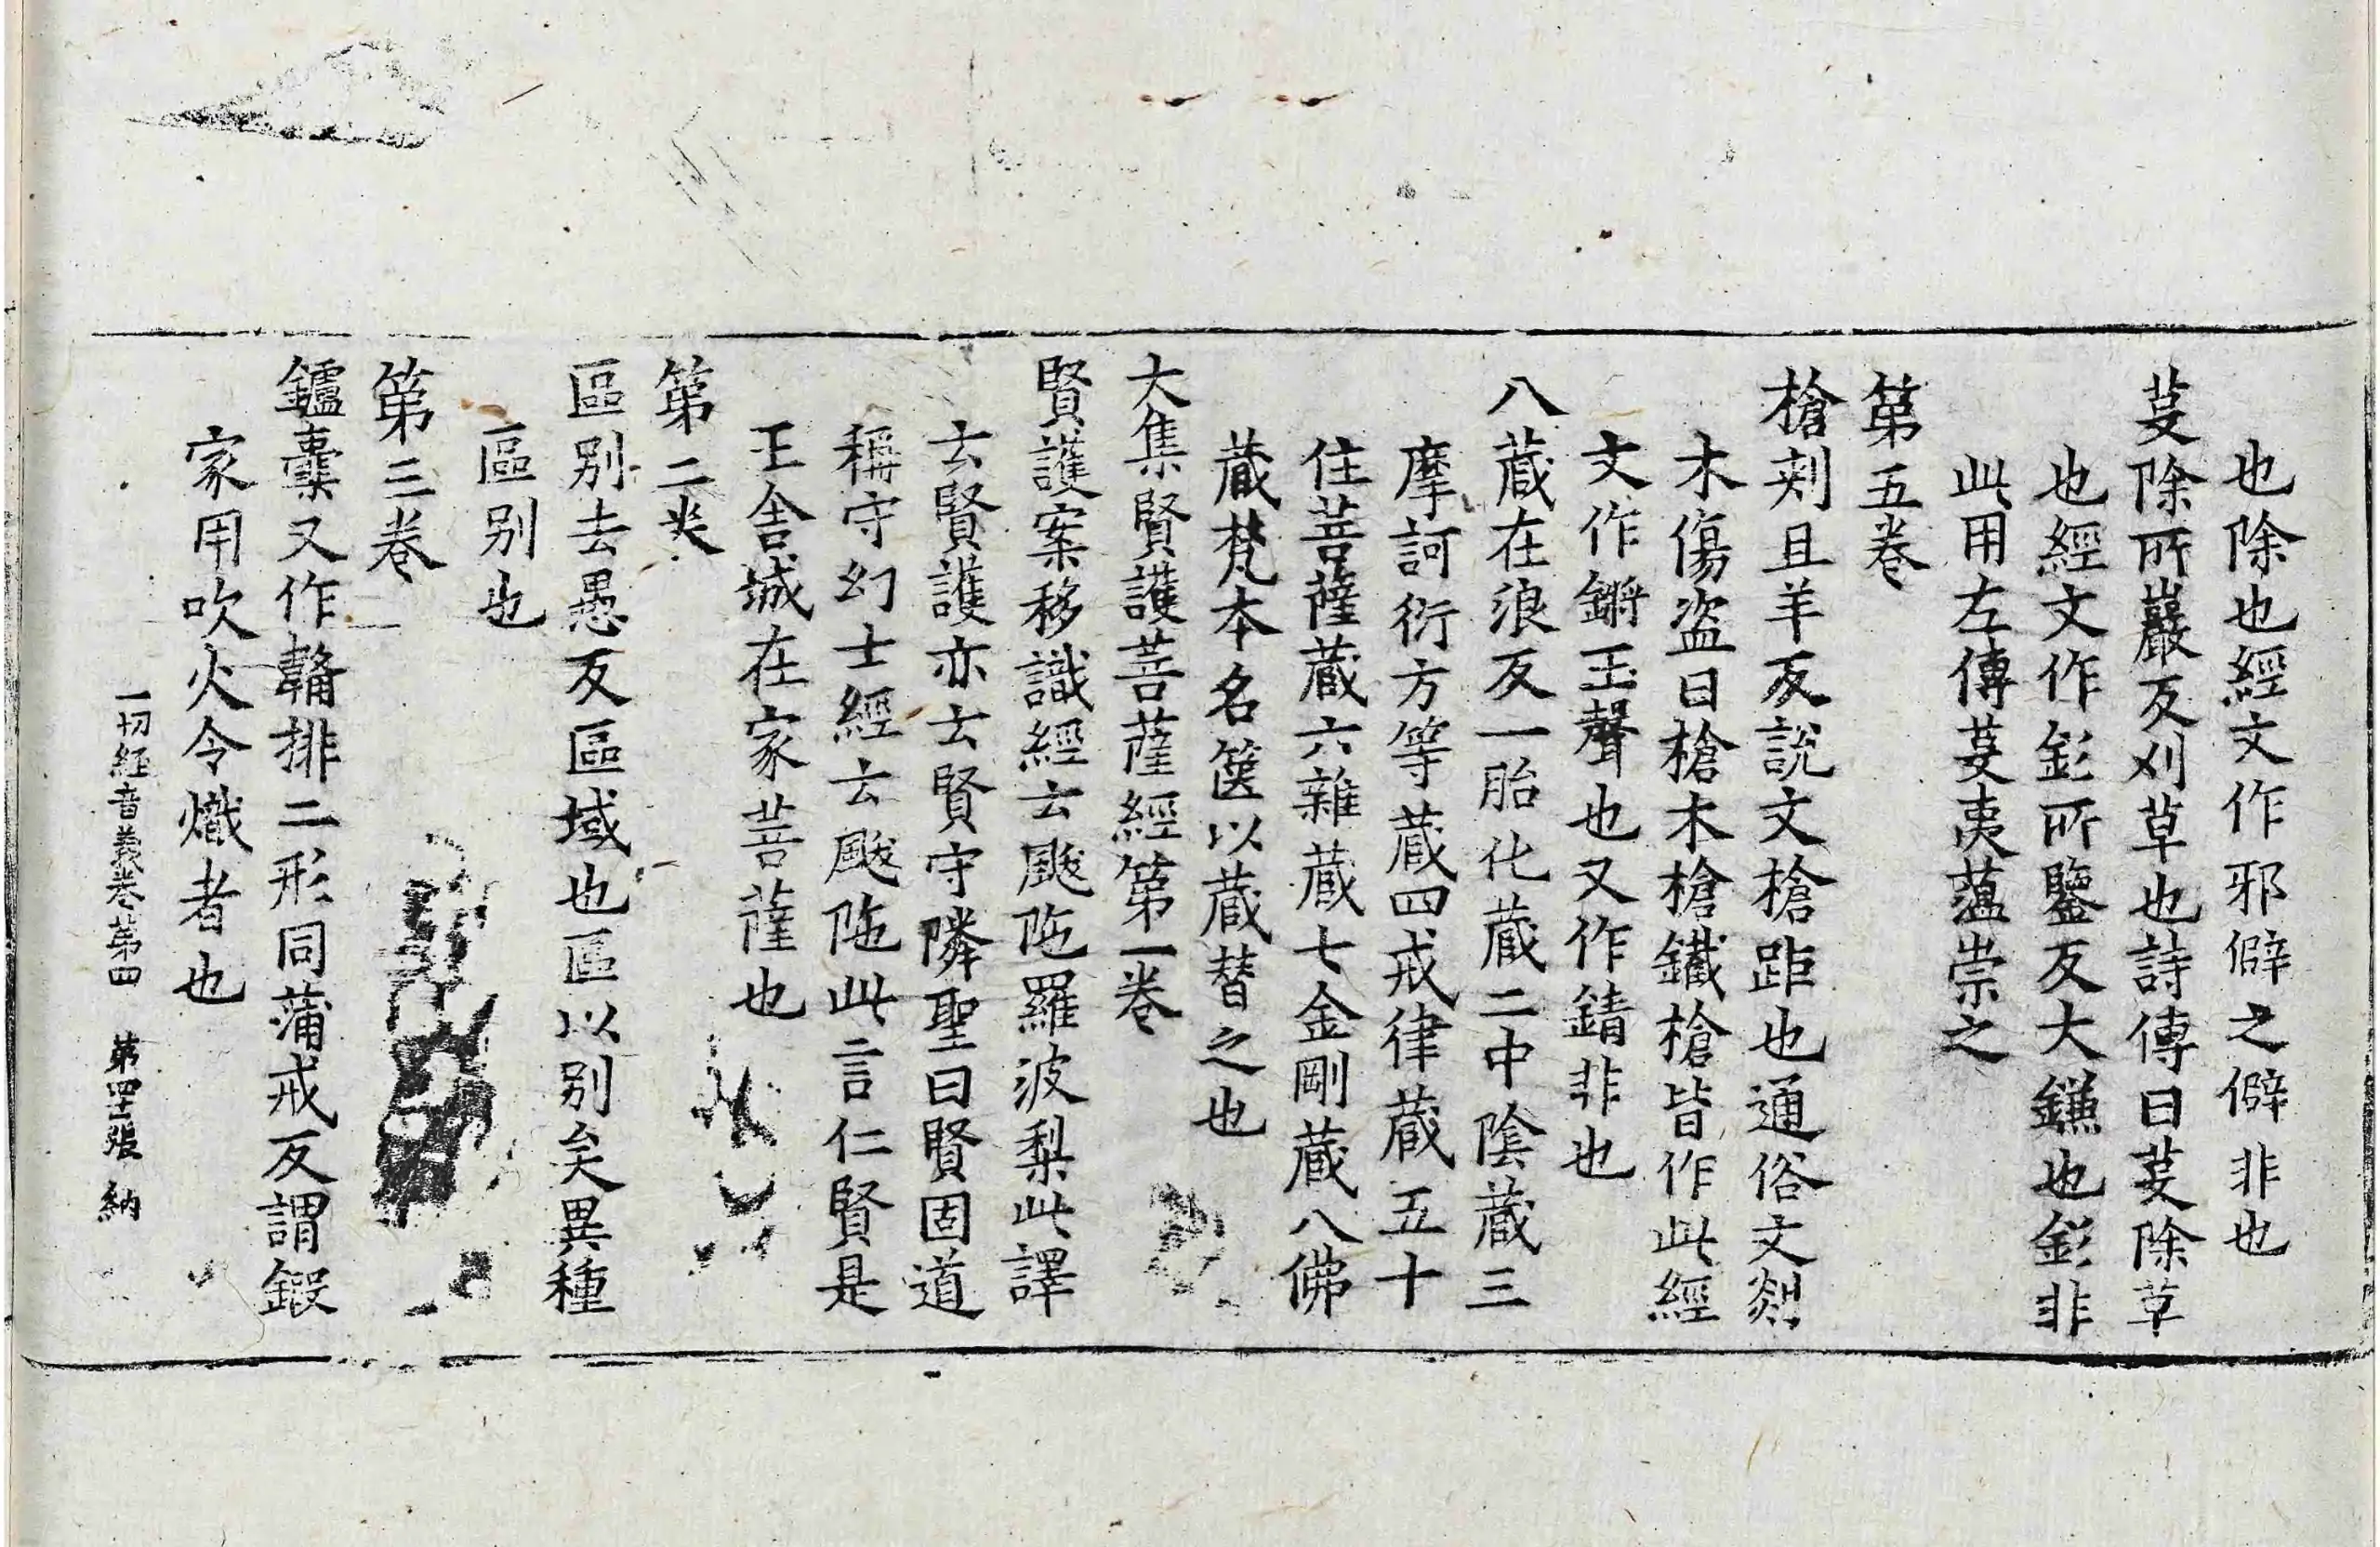 也除也經文作邪僻之僻非也
芟除所巖反刈草也詩傳曰芟除草
也經文作釤所鑒反大鎌也釤非
此用左傳芟夷薀崇之
第五卷
槍刾且羊反說文槍距也通俗文剡
木傷盜曰槍木槍鐵槍皆作此經
文作鏘玉聲也又作錆非也
八蔵在浪反一胎化蔵二中陰蔵三
摩訶衍方等蔵四戒律蔵五十
住菩薩蔵六雜蔵七金剛蔵八佛
蔵梵本名篋以蔵替之也
大集賢護菩薩經第一卷
賢護案移識經云颰陁羅波梨此譯
云賢護亦云賢守隣聖曰賢固道
稱守幻士經云颰陁此言仁賢是
王舍城在家菩薩也
第二
區別去愚反區域也區以別矣異種
區別也
第三卷
鑪橐又作韛排二形同蒲戒反謂鍜
家用吹火令熾者也
一切經音義卷第四 第 張 納